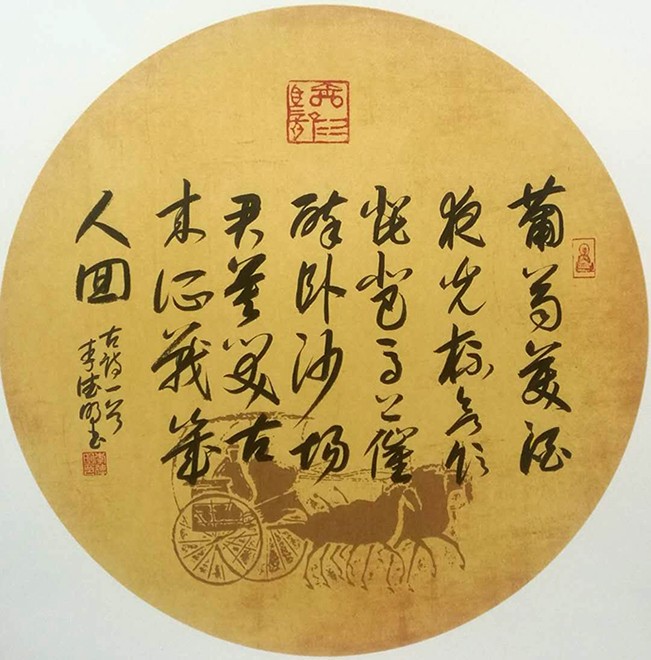 葡萄美酒
夜光杯欲饮
琵琶马上催
醉卧沙场
君莫笑古
来征战幾
人回
古诗一首
李德明书